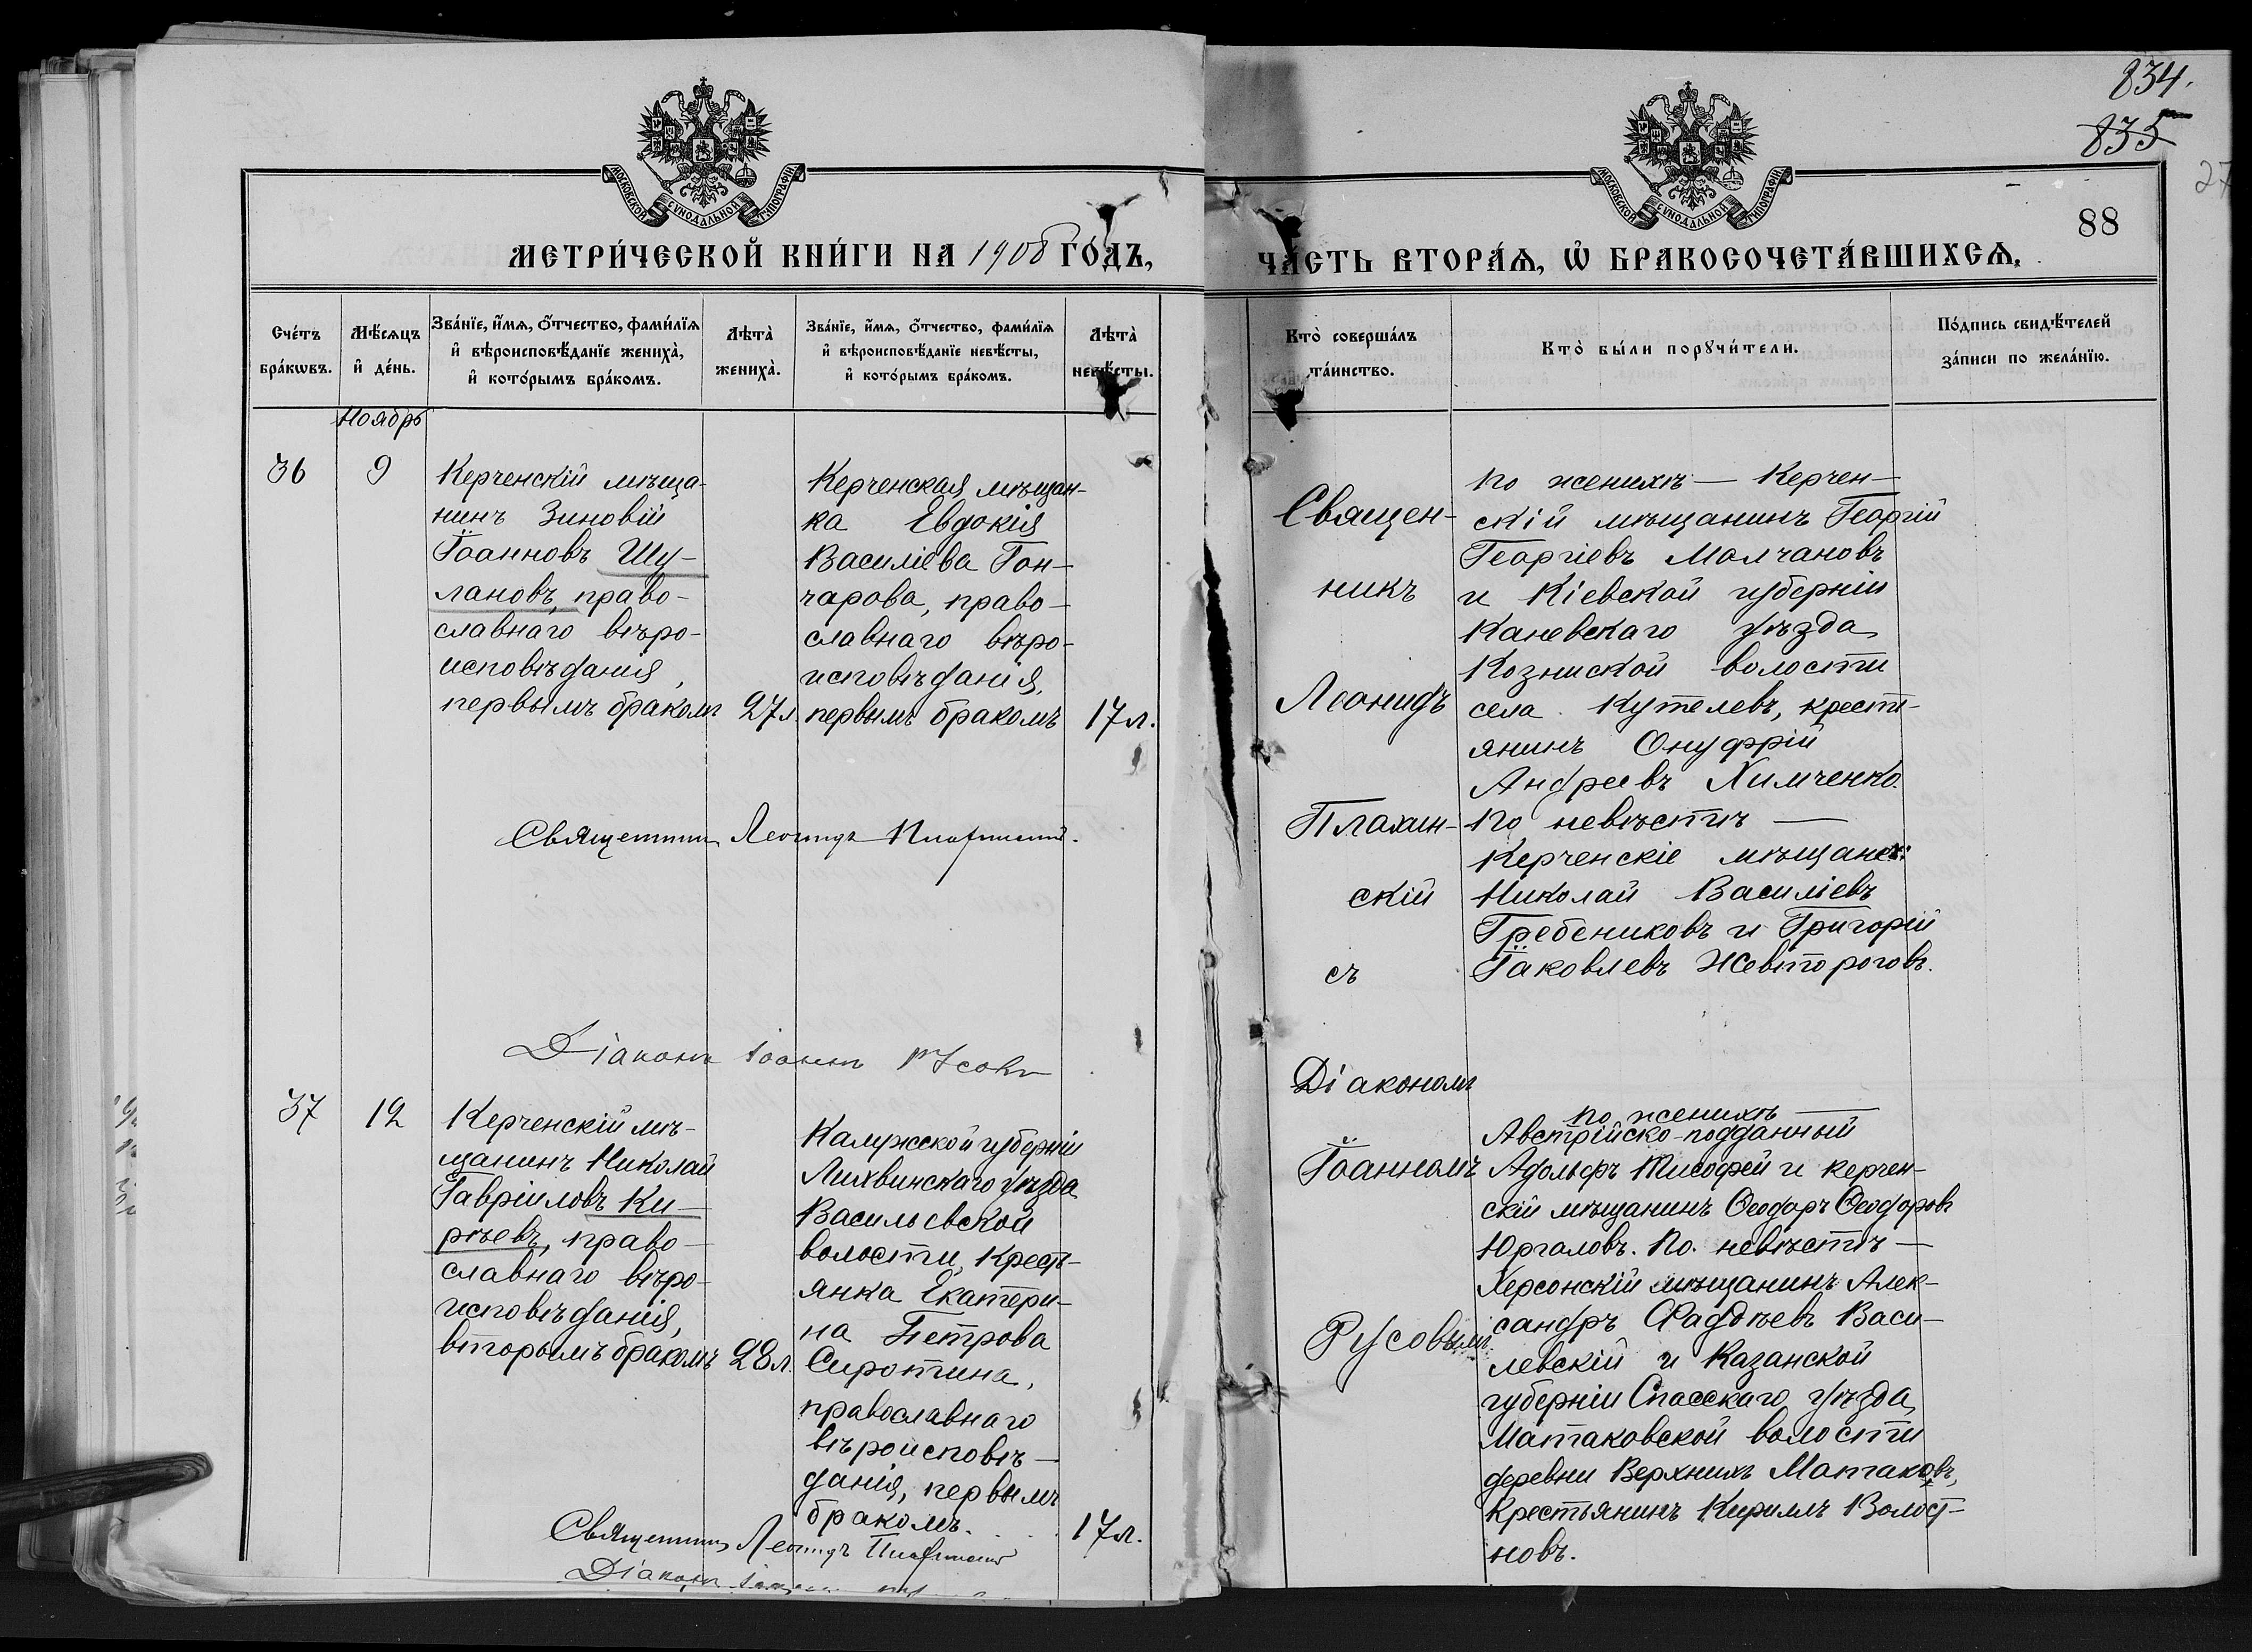 834.
835
27
88
МОСКОВСКОЙ СУНОДАЛЬНОЙ ТУПОГРАФІИ
МОСКОВСКОЙ СУНОДАЛЬНОЙ ТУПОГРАФІИ
МЕТРИ́ЧЕСКОЙ КНИ́ГИ НА 1908 ГО́ДЪ,
ЧА́СТЬ ВТОРА́Ѧ, Ѡ БРАКОСОЧЕТА́ВШИХСѦ.
Сче́тъ бра́кѡвъ.
Мѣ́сѧцъ и҆ де́нь.
Зва́нїе, и҆́мѧ, ѻ҆́тчество, фами́лїѧ и҆ вѣроисповѣ́данїе жениха̀, и҆ кото́рымъ бра́комъ.
Лѣта̀ жениха̀.
Зва́нїе, и҆́мѧ, ѻ҆́тчество, фами́лїѧ и҆ вѣроисповѣ́данїе невѣ́сты, и҆ кото́рымъ бра́комъ.
Лѣта̀ невѣ́сты.
Кто̀ соверша́лъ та́инство.
Кто̀ бы́ли порꙋчи́тели.
По́дпись свидѣ́телей за́писи по жела́нїю.
Ноябрь
36
9
Керченскій мѣща-
нинъ Зиновій
Іоанновъ Шу-
лановъ, право-
славнаго вѣро-
исповѣданія,
первымъ бракомъ
27л
Керченская мѣщан-
ка Евдокія
Василіева Гон-
чарова, право-
славнаго вѣро-
исповѣданія,
первымъ бракомъ
17л.
Священникъ Леонидъ Плахинскій.
Діаконъ Іоаннъ Русовъ
Священ-
никъ
Леонидъ
Плахин-
скій
съ
Діакономъ
Іоанномъ
Русовымъ.
По женихѣ — Керчен-
скій мѣщанинъ Георгій
Георгіевъ Молчановъ
и Кіевской губерніи
Каневскаго уѣзда
Козинской волости
села Кутелевъ, крест-
янинъ Онуфрій
Андреевъ Химченко.
По невѣстѣ —
Керченскіе мѣщане:
Николай Василіевъ
Гребениковъ и Григорій
Іаковлевъ Жевтороговъ.
37
12
Керченскій мѣ-
щанинъ Николай
Гавріиловъ Ки-
рѣевъ, право-
славнаго вѣро-
исповѣданія,
вторымъ бракомъ
28л.
Калужской губерніи
Лихвинскаго уѣзда
Васильевской
волости, крест-
янка Екатери-
на Петрова
Сиротина,
православнаго
вѣроисповѣ-
данія, первымъ
бракомъ.
17л.
Священникъ Леонидъ Плахинскій
Діаконъ Іоаннъ
По женихѣ —
Австрійско-подданный
Адольфъ Тисофей и керчен-
скій мѣщанинъ Ѳеодоръ Ѳеодоровъ
Юргаловъ. По невѣстѣ —
Херсонскій мѣщанинъ Алек-
сандръ Фаддѣевъ Васи-
левскій и Казанской
губерніи Спасскаго уѣзда,
Матаковской волости
деревни Верхнихъ Матаковъ,
крестьянинъ Кириллъ Волост-
новъ.